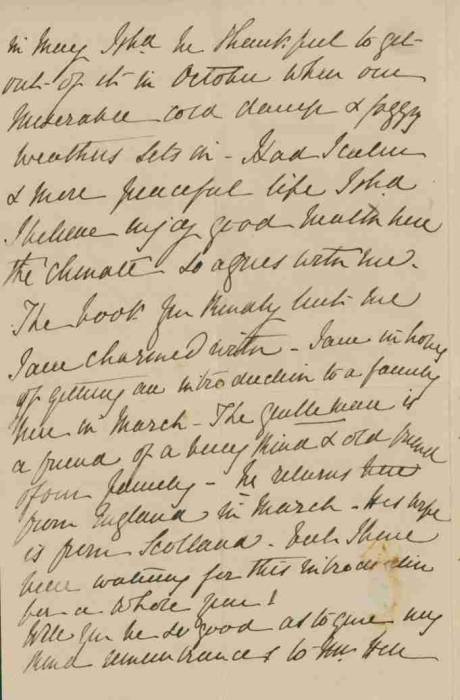 in May I shd be thankful to get
out of it in October when our
miserable cold damp & foggy
weather sets in - Had I calm
& more peaceful life I shd
I believe enjoy good health here
the climate so agrees with me.
The book you kindly lent me
I am charmed with - I am in hopes
of getting an introduction to a family
here in March - The gentleman is
a friend of a very kind & old friend
of our family - he returns here
from England in March - His wife
is from Scotland - but I have
been waiting for this introduction
for a whole year!
Will you be so good as to give my
kind remembrances to Mrs